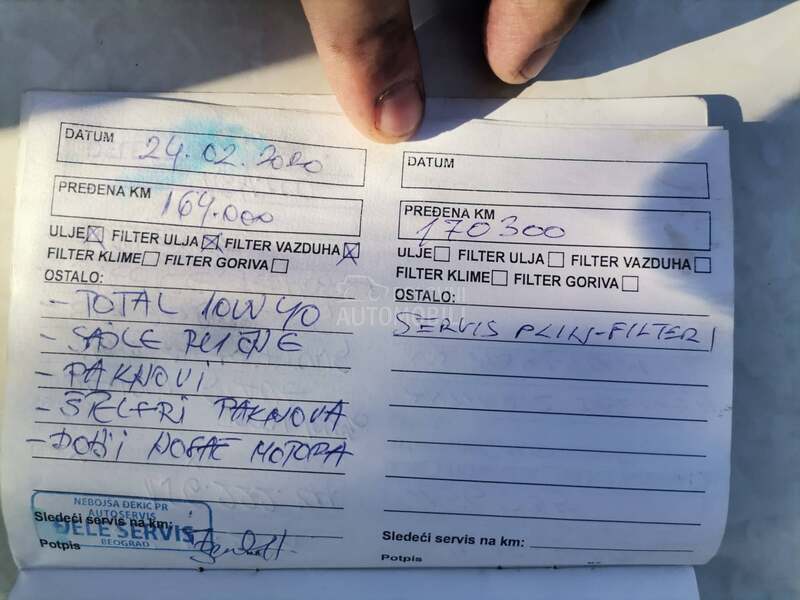 DATUM 24.02.2020
PREĐENA KM 164.000
ULJE FILTER ULJA FILTER VAZDUHA
FILTER KLIME FILTER GORIVA
OSTALO:
- TOTAL 10W40
- SAJLE RUČNE
- PAKNOVI
- ŠTELERI PAKNOVA
- DONJI NOSAČ MOTORA
NEBOJŠA ĐEKIĆ PR
AUTOSERVIS
ĐELE SERVIS
BEOGRAD
Sledeći servis na km:
Potpis
DATUM
PREĐENA KM 170300
ULJE FILTER ULJA FILTER VAZDUHA
FILTER KLIME FILTER GORIVA
OSTALO:
SERVIS PLIN-FILTERI
Sledeći servis na km:
Potpis
AUTOMOBILI